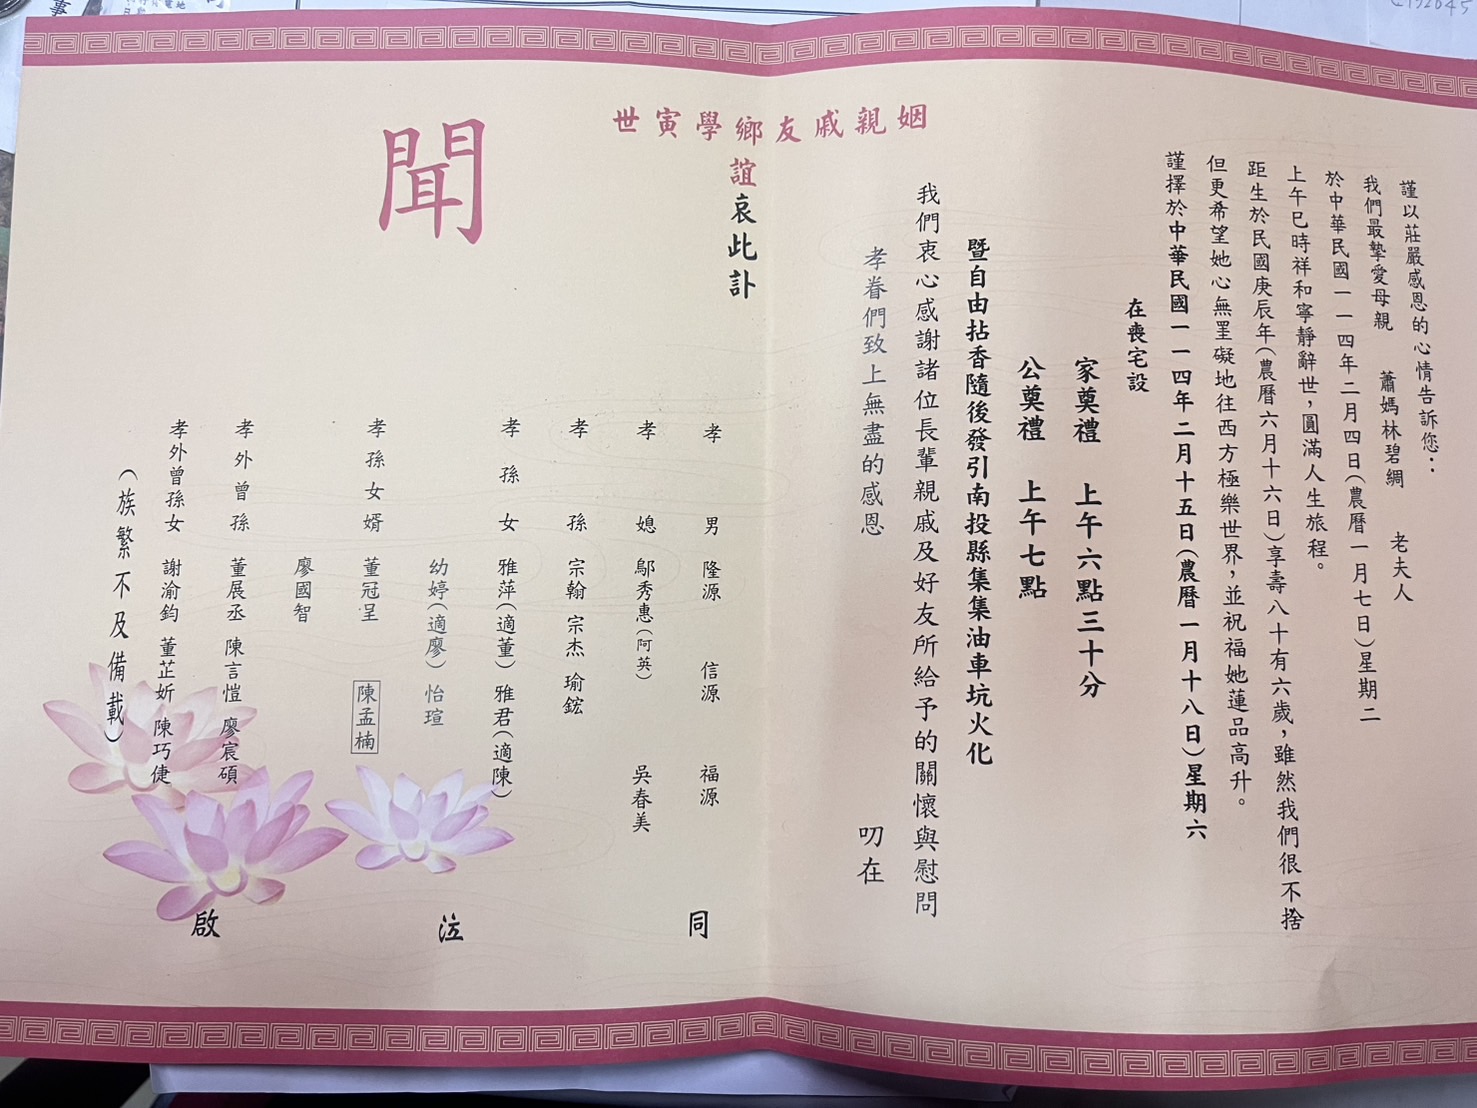 謹以莊嚴感恩的心情告訴您：
我們最摯愛母親 蕭媽林碧綢 老夫人
於中華民國一一四年二月四日（農曆一月七日）星期二
上午巳時祥和寧靜辭世，圓滿人生旅程。
距生於民國庚辰年（農曆六月十六日）享壽八十有六歲，雖然我們很不捨
但更希望她心無罣礙地往西方極樂世界，並祝福她蓮品高升。
謹擇於中華民國一一四年二月十五日（農曆一月十八日）星期六
在喪宅設
家奠禮 上午六點三十分
公奠禮 上午七點
暨自由拈香隨後發引南投縣集集油車坑火化
我們衷心感謝諸位長輩親戚及好友所給予的關懷與慰問
孝眷們致上無盡的感恩
叨在
姻親戚友鄉學寅世
誼哀此訃
聞
孝男 隆源 信源 福源
孝媳 鄔秀惠（阿英） 吳春美
孝孫 宗翰 宗杰 瑜鋐
孝孫女 雅萍（適董） 雅君（適陳）
幼婷（適廖） 怡瑄
孝孫女婿 董冠呈 陳孟楠
廖國智
孝外曾孫 董展丞 陳言愷 廖宸碩
孝外曾孫女 謝渝鈞 董芷妡 陳巧倢
（族繁不及備載）
同 泣 啟